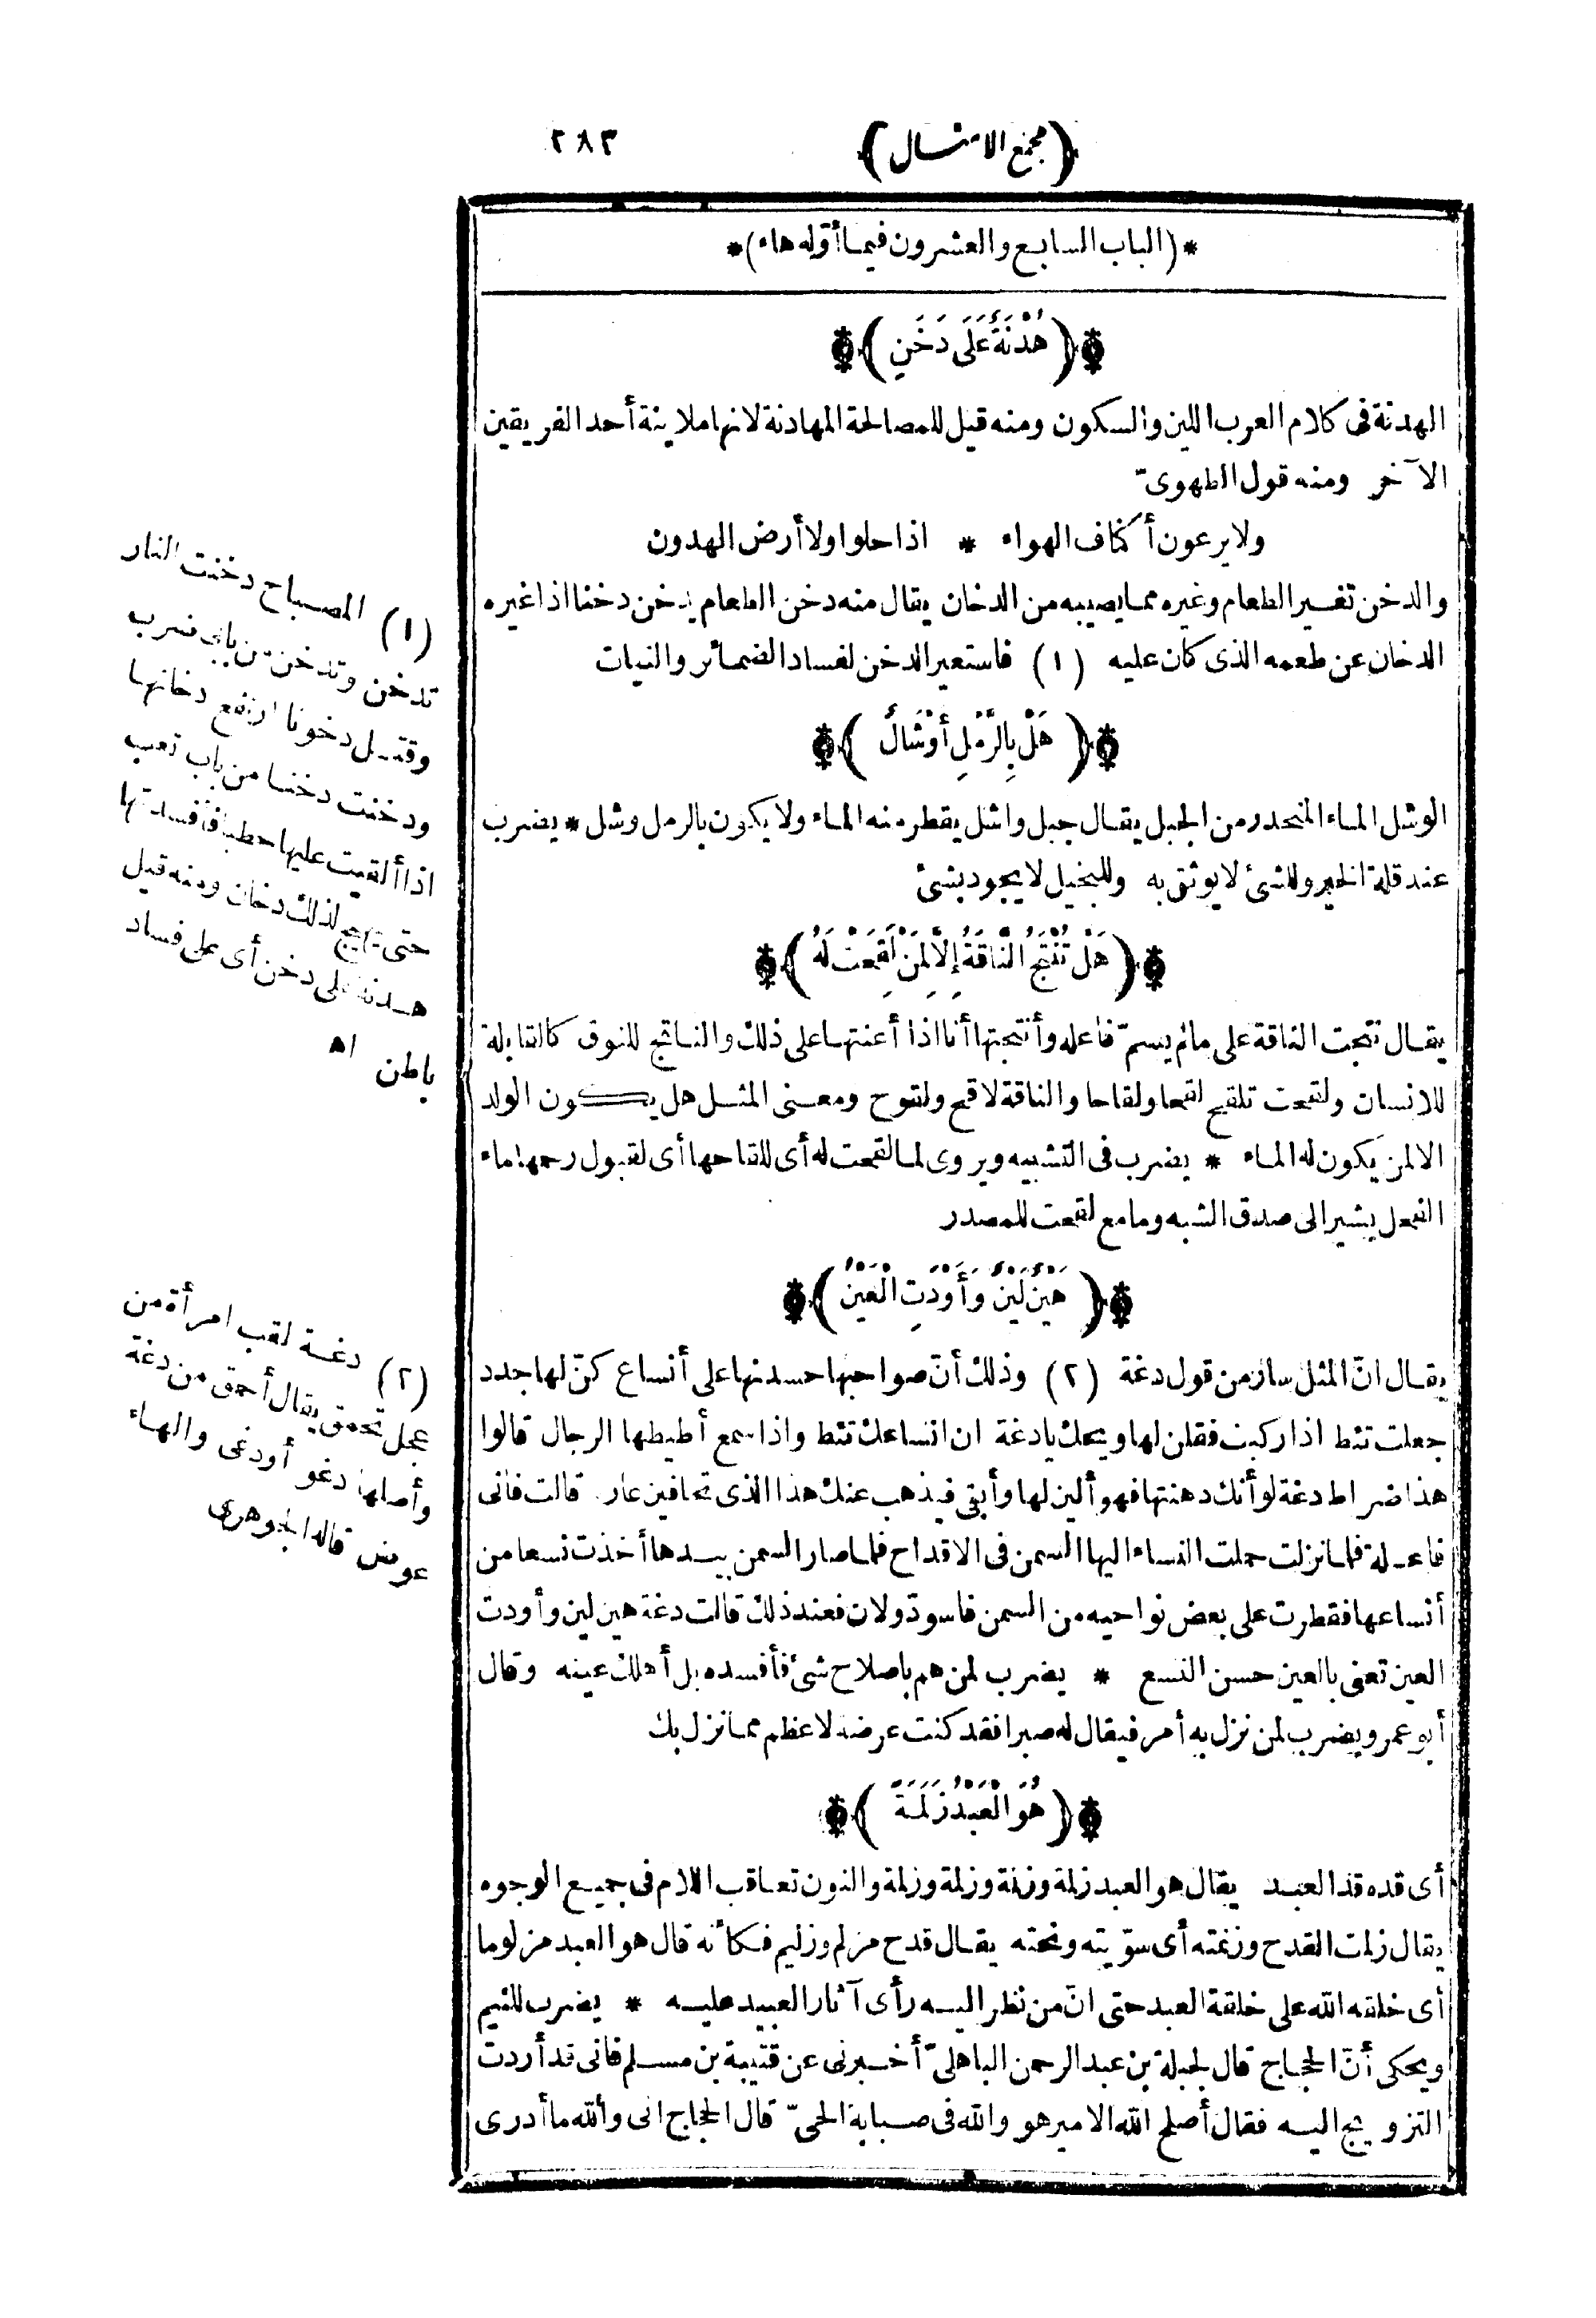 (مجمع الامثال) ٢٨٣
*(الباب السابع والعشرون فيما أوّله هاء)*
(هُدْنَةٌ عَلَى دَخَنٍ)
الهدنة فى كلام العرب اللين والسكون ومنه قيل للمصالحة المهادنة لانها ملاينة أحد الفريقين
الآخر ومنه قول الطهوىّ
ولا يرعون أكناف الهواء * اذا حلوا ولا أرض الهدون
والدخن تغسير الطعام وغيره مما يصيبه من الدخان يقال منه دخن الطعام يدخن دخنا اذا غيره
الدخان عن طعمه الذى كان عليه (١) فاستعير الدخن لفساد الضمائر والنيات
(هَلْ بِالرَّمْلِ أَوْشَالٌ)
الوشل الماء المنحدر من الجبل يقال جبل واشل يقطر منه الماء ولا يكون بالرمل وشل * يضرب
عند قلة الخير وللشئ لا يوثق به وللبخيل لا يجود بشئ
(هَلْ تُنْتَجُ النَّاقَةُ إِلَّا لِمَنْ لَقِحَتْ لَهُ)
يقال نتجت الناقة على مالم يسمّ فاعله وأنتجتها أنا اذا أعنتها على ذلك والناتج للنوق كالقابلة
للانسان ولقحت تلقح لقحا ولقاحا والناقة لاقح ولقوح ومعنى المثل هل يكون الولد
الالمن يكون له الماء * يضرب فى التشبيه ويروى لما لقحت له أى للقاحها أى لقبول رحمها ماء
الفحل يشير الى صدق الشبه وما مع لقحت للمصدر
(هَيْنٌ لَيْنٌ وَأَوْدَتِ الْعَيْنُ)
يقال انّ المثل سار من قول دغة (٢) وذلك أنّ صواحبها حسدنها على أنساع كنّ لها جدد
جعلت تئط اذا ركبت فقلن لها ويحك يا دغة ان انساعك تئط واذا سمع أطيطها الرجال قالوا
هذا ضراط دغة لو أنك دهنتها فهو ألين لها وأبقى فيذهب عنك هذا الذى تخافين عار. قالت فانى
فاعلة فلما نزلت حملت النساء اليها السمن فى الاقداح فلما صار السمن بيدها أخذت نسعا من
أنساعها فقطرت على بعض نواحيه من السمن فاسودّ ولان فعند ذلك قالت دغة هين لين وأودت
العين تعنى بالعين حسن النسع * يضرب لمن هم باصلاح شئ فأفسده بل أهلك عينه وقال
أبو عمرو يضرب لمن نزل به أمر فيقال له صبرا فقد كنت عرضة لاعظم مما نزل بك
(هُوَ الْعَبْدُ زَلَمَةً)
أى قده قد العبد يقال هو العبد زلمة وزنمة وزلمة وزلمة والنون تعاقب اللام فى جميع الوجوه
يقال زلمت القدح وزنمته أى سوّيته ونحته يقال قدح مزلم وزليم فكأنه قال هو العبد مزلوما
أى خلقه الله على خلقة العبد حتى انّ من نظر اليه رأى آثار العبيد عليه * يضرب للئيم
ويحكى أنّ الحجاج قال لجبلة بن عبد الرحمن الباهلىّ أخبرنى عن قتيبة بن مسلم فانى قد أردت
التزويج اليه فقال أصلح الله الامير هو والله فى صيابة الحىّ قال الحجاج انى والله ما أدرى
(١) المصباح دخنت النار
تدخن وتدخن من بابى ضرب
وقتل دخونا ارتفع دخانها
ودخنت دخنا من باب تعب
اذا ألقيت عليها حطبا فأفسدتها
حتى يهيج لذلك دخان ومنه قيل
هدنة على دخن أى على فساد
باطن اه
(٢) دغة لقب امرأة من
عجل تحمق يقال أحمق من دغة
وأصلها دغو أودغى والهاء
عوض قاله الجوهرى